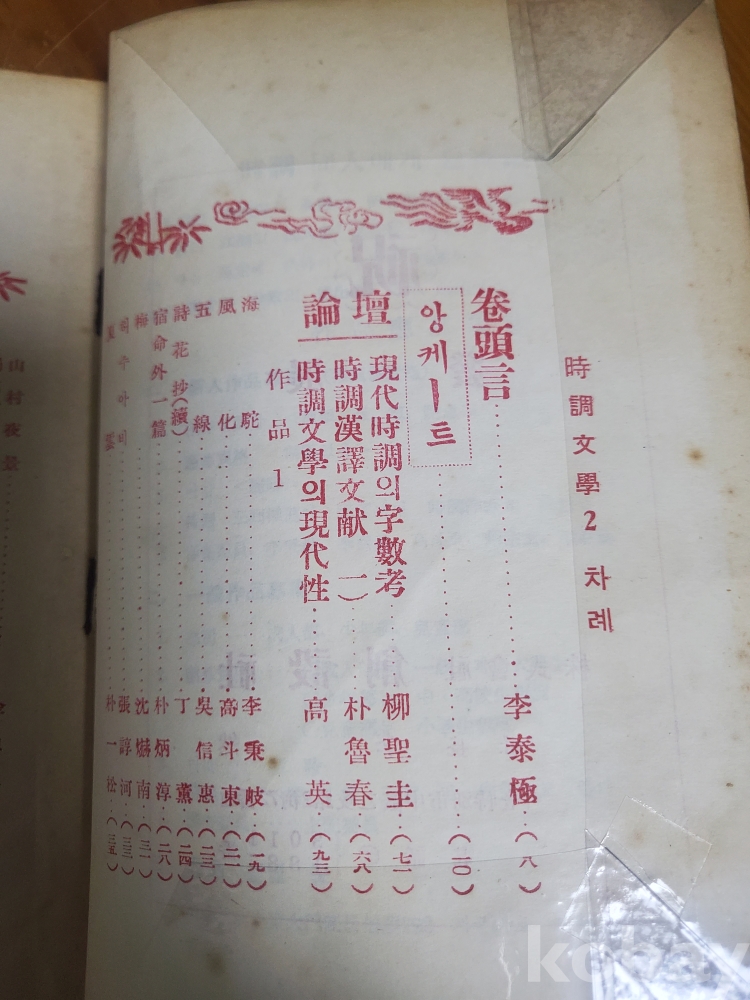 時調文學 2 차례
卷頭言 李泰極 (八)
앙케ー트 (一〇)
論壇
現代時調의字數考 柳聖圭 (七一)
時調漢譯文献 一) 朴魯春 (六八)
時調文學의現代性 高英 (九三)
作品 1
海駝 李秉岐 (一九)
風化 高斗東 (二一)
五線 吳信惠 (二三)
詩花抄(續) 丁薰 (二四)
宿命外一篇 朴炳淳 (二八)
梅 沈 南 (三一)
허수아비 張諄河 (三三)
朴一松 (三五)
山村夜景
kobay